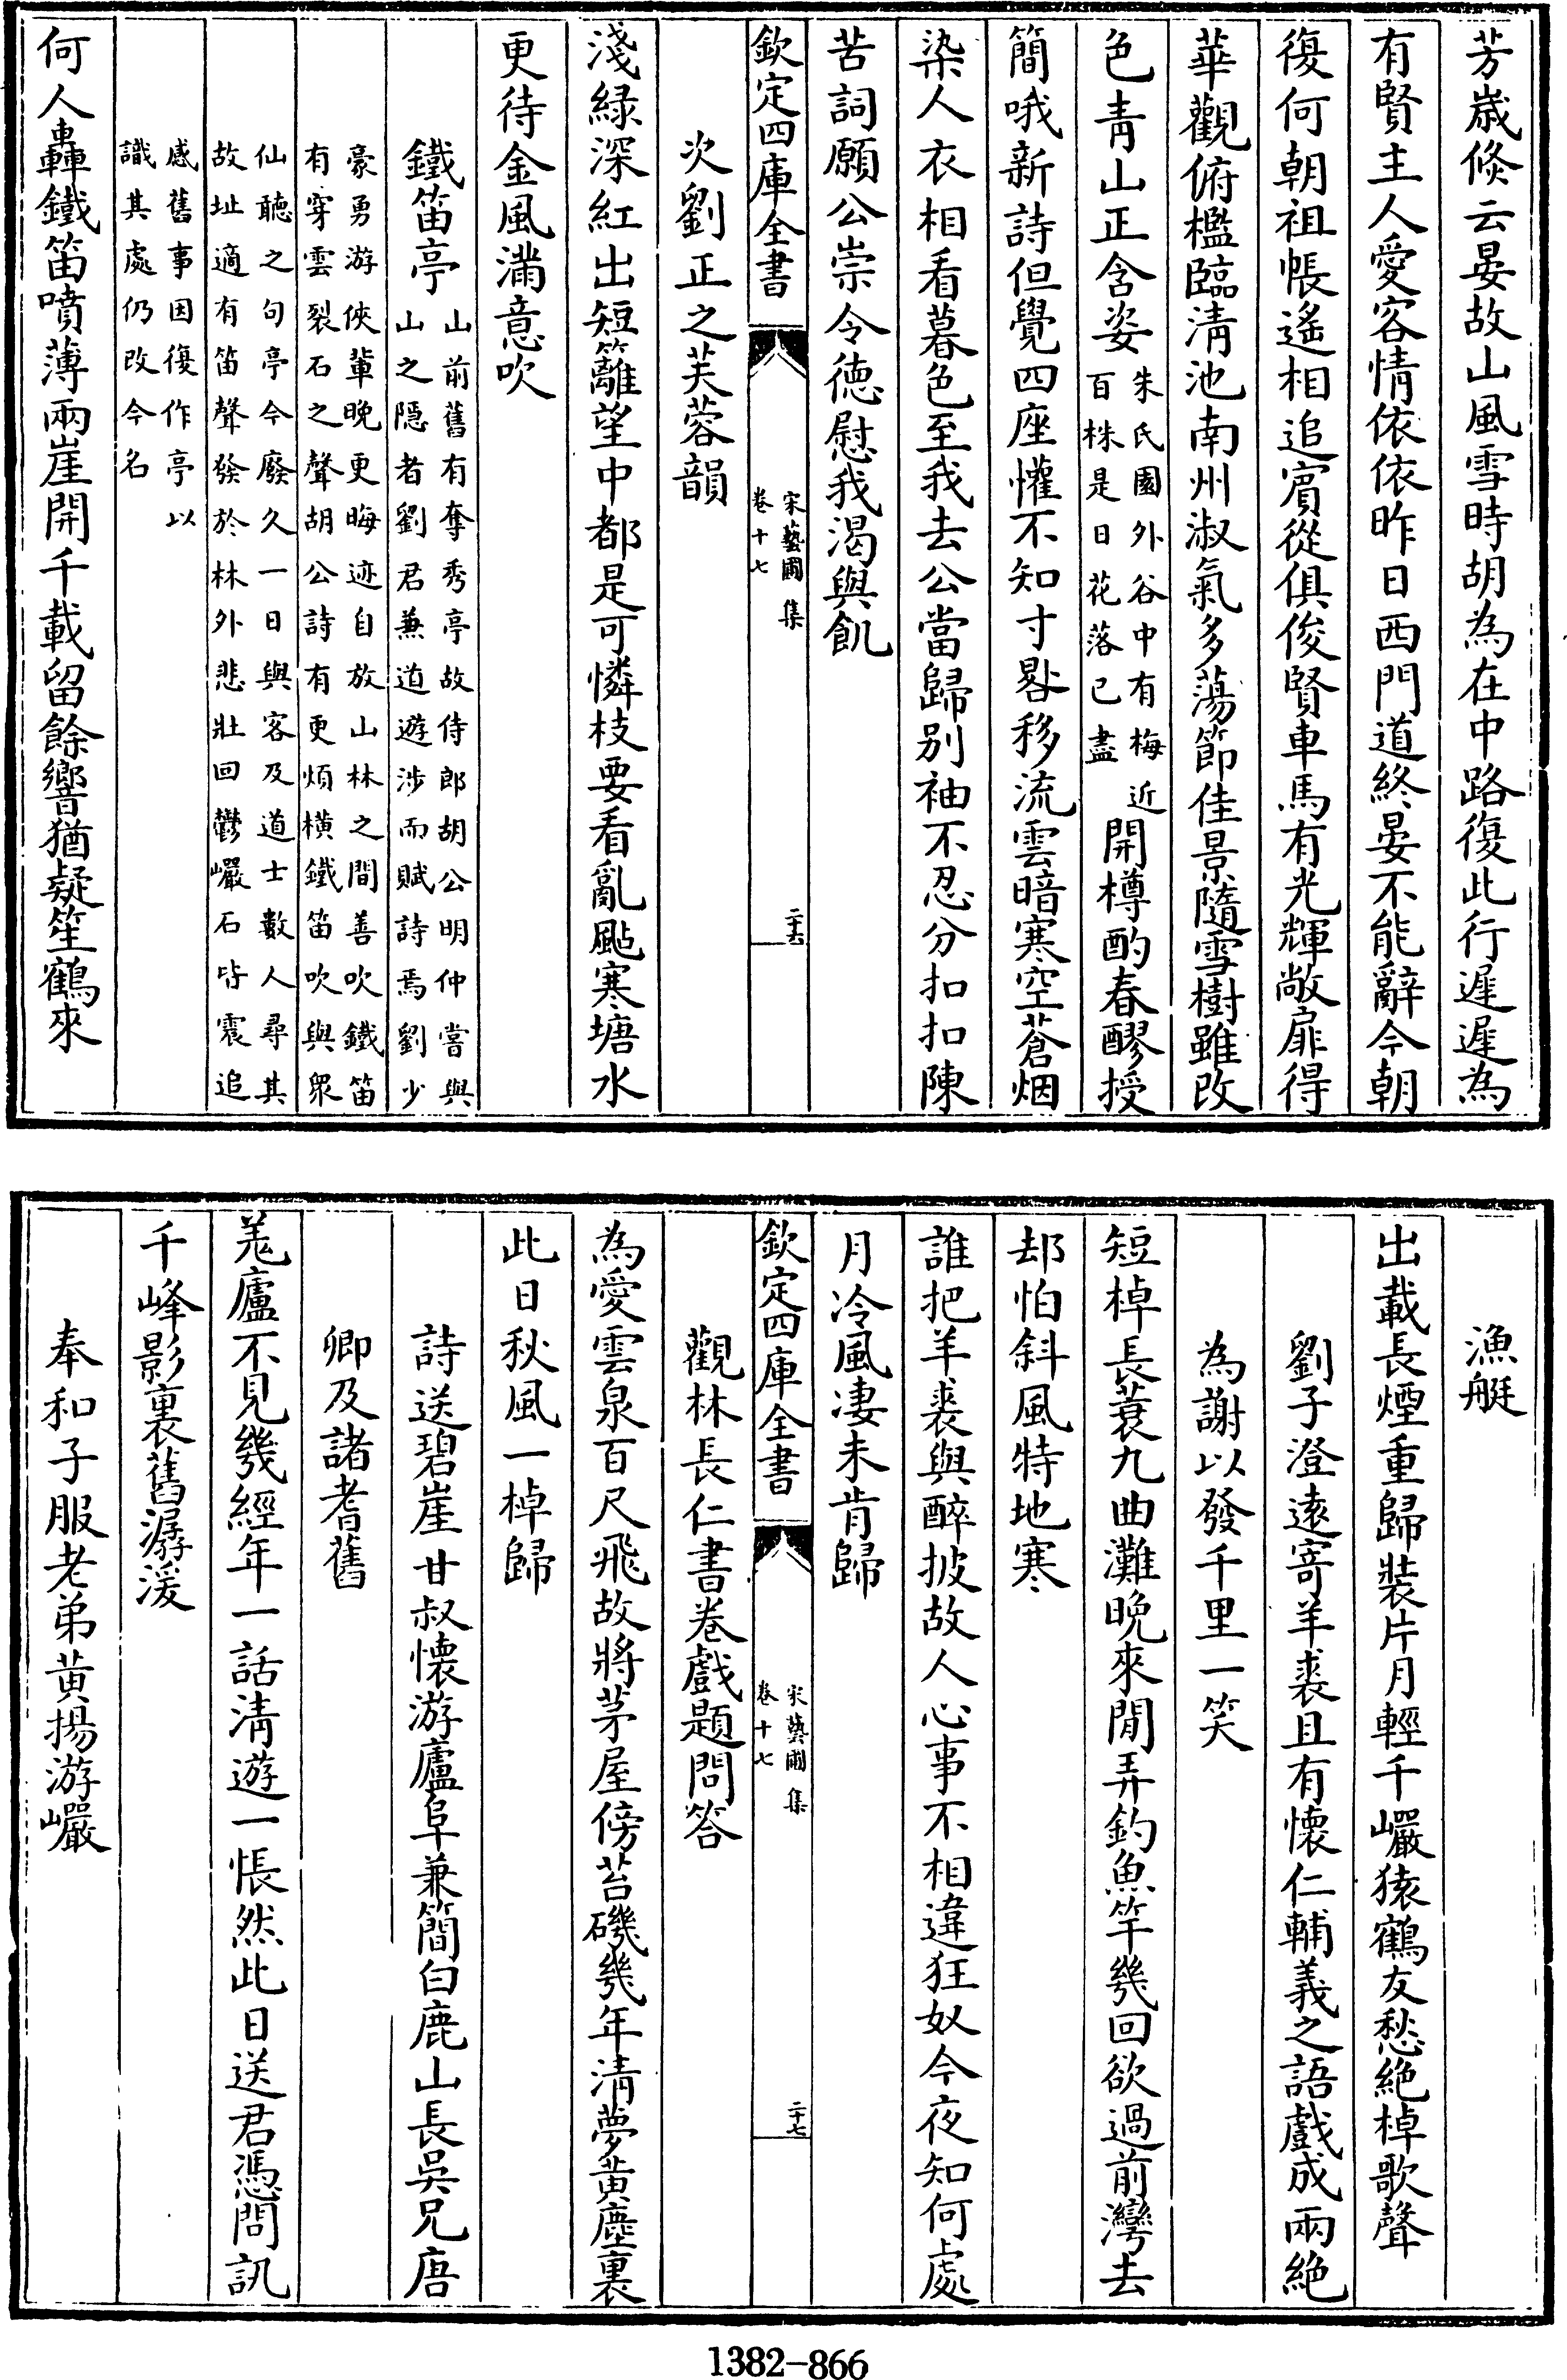 芳嵗倐云晏故山風雪時胡為在中路復此行遲遲為
有賢主人愛客情依依昨日西門道終晏不能辭今朝
復何朝祖帳遙相追賓從俱俊賢車馬有光輝敞扉得
華觀俯檻臨清池南州淑氣多蕩節佳景隨雪樹雖改
色青山正含姿朱氏園外谷中有梅近
百株是日花落已盡開樽酌春醪授
簡哦新詩但覺四座懽不知寸晷移流雲暗寒空蒼烟
染人衣相看暮色至我去公當歸别袖不忍分扣扣陳
苦詞願公崇令徳慰我渴與飢
欽定四庫全書
宋藝圃集
卷十七
二十六
次劉正之芙蓉韻
淺緑深紅出短籬望中都是可憐枝要看亂颭寒塘水
更待金風滿意吹
鐵笛亭山前舊有奪秀亭故侍郎胡公明仲嘗與
山之隱者劉君兼道遊涉而賦詩焉劉少
豪勇游俠軰晩更晦迹自放山林之間善吹鐵笛
有穿雲裂石之聲胡公詩有更煩横鐵笛吹與衆
仙聽之句亭今廢久一日與客及道士數人尋其
故址適有笛聲發於林外悲壯回鬱巖石皆震追
感舊事因復作亭以
識其處仍改今名
何人轟鐵笛噴薄兩崖開千載留餘響猶疑笙鶴來
漁艇
出載長煙重歸裝片月輕千巖猿鶴友愁絶棹歌聲
劉子澄逺寄羊裘且有懷仁輔義之語戲成兩絶
為謝以發千里一笑
短棹長蓑九曲灘晩來閒弄釣魚竿幾回欲過前灣去
却怕斜風特地寒
誰把羊裘與醉披故人心事不相違狂奴今夜知何處
月冷風凄未肯歸
欽定四庫全書
宋藝圃集
卷十七
二十七
觀林長仁書卷戲題問答
為愛雲泉百尺飛故將茅屋傍苔磯幾年清夢黄塵裏
此日秋風一棹歸
詩送碧崖甘叔懷游廬阜兼簡白鹿山長吳兄唐
卿及諸耆舊
羗廬不見幾經年一話清遊一悵然此日送君馮問訊
千峰影裏舊潺湲
奉和子服老弟黄揚游巖
1382-866